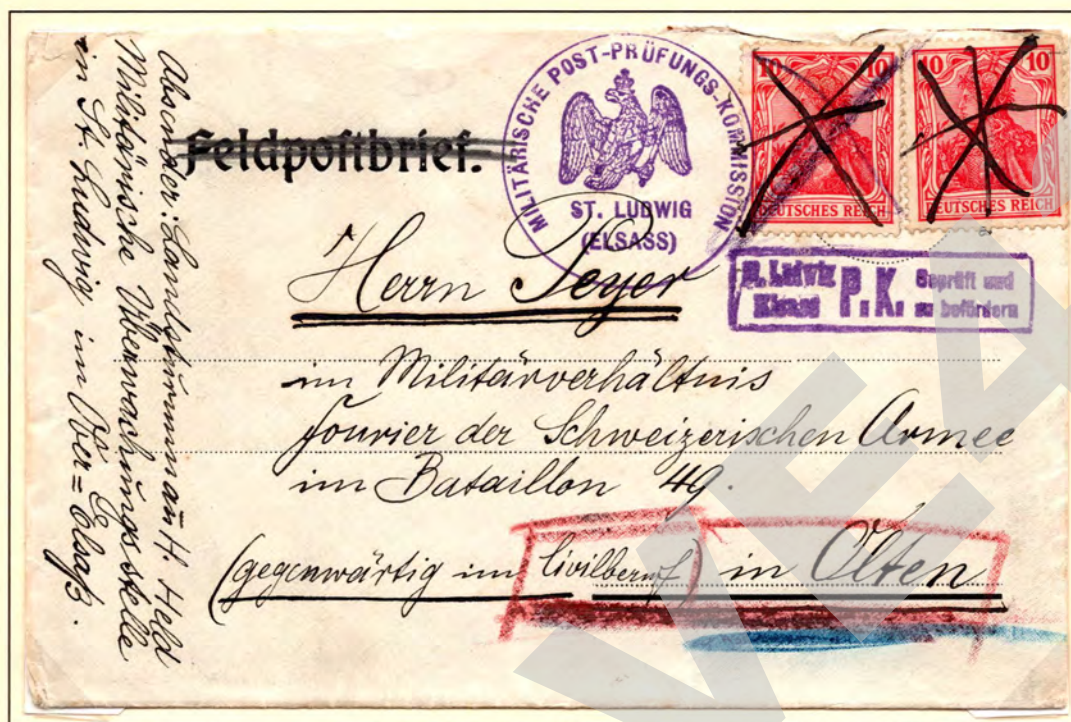 Absender: Landsturmmann H. Held
Militärische Überwachungsstelle
in St. Ludwig im Ober=Elsaß.
Feldpostbrief.
MILITÄRISCHE POST-PRÜFUNGS-KOMMISSION
ST. LUDWIG
(ELSASS)
10 10
DEUTSCHES REICH
10 10
DEUTSCHES REICH
St. Ludwig P.K. Geprüft und
Elsass zu befördern
Herrn Peyer
im Militärverhältnis
Fourier der Schweizerischen Armee
im Bataillon 49.
(gegenwärtig im Civilberuf) in Olten